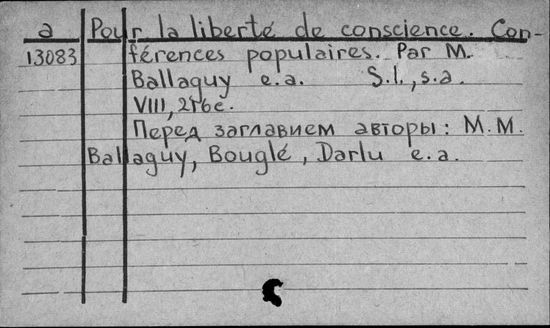 a Pour la liberté de conscience. Con-
13083 férences populaires. Par M.
Ballaguy e.a. S.l., s.a.
VIII, 216 с.
Перед заглавием авторы: M.M.
Ballaguy, Bouglé, Darlu e.a.